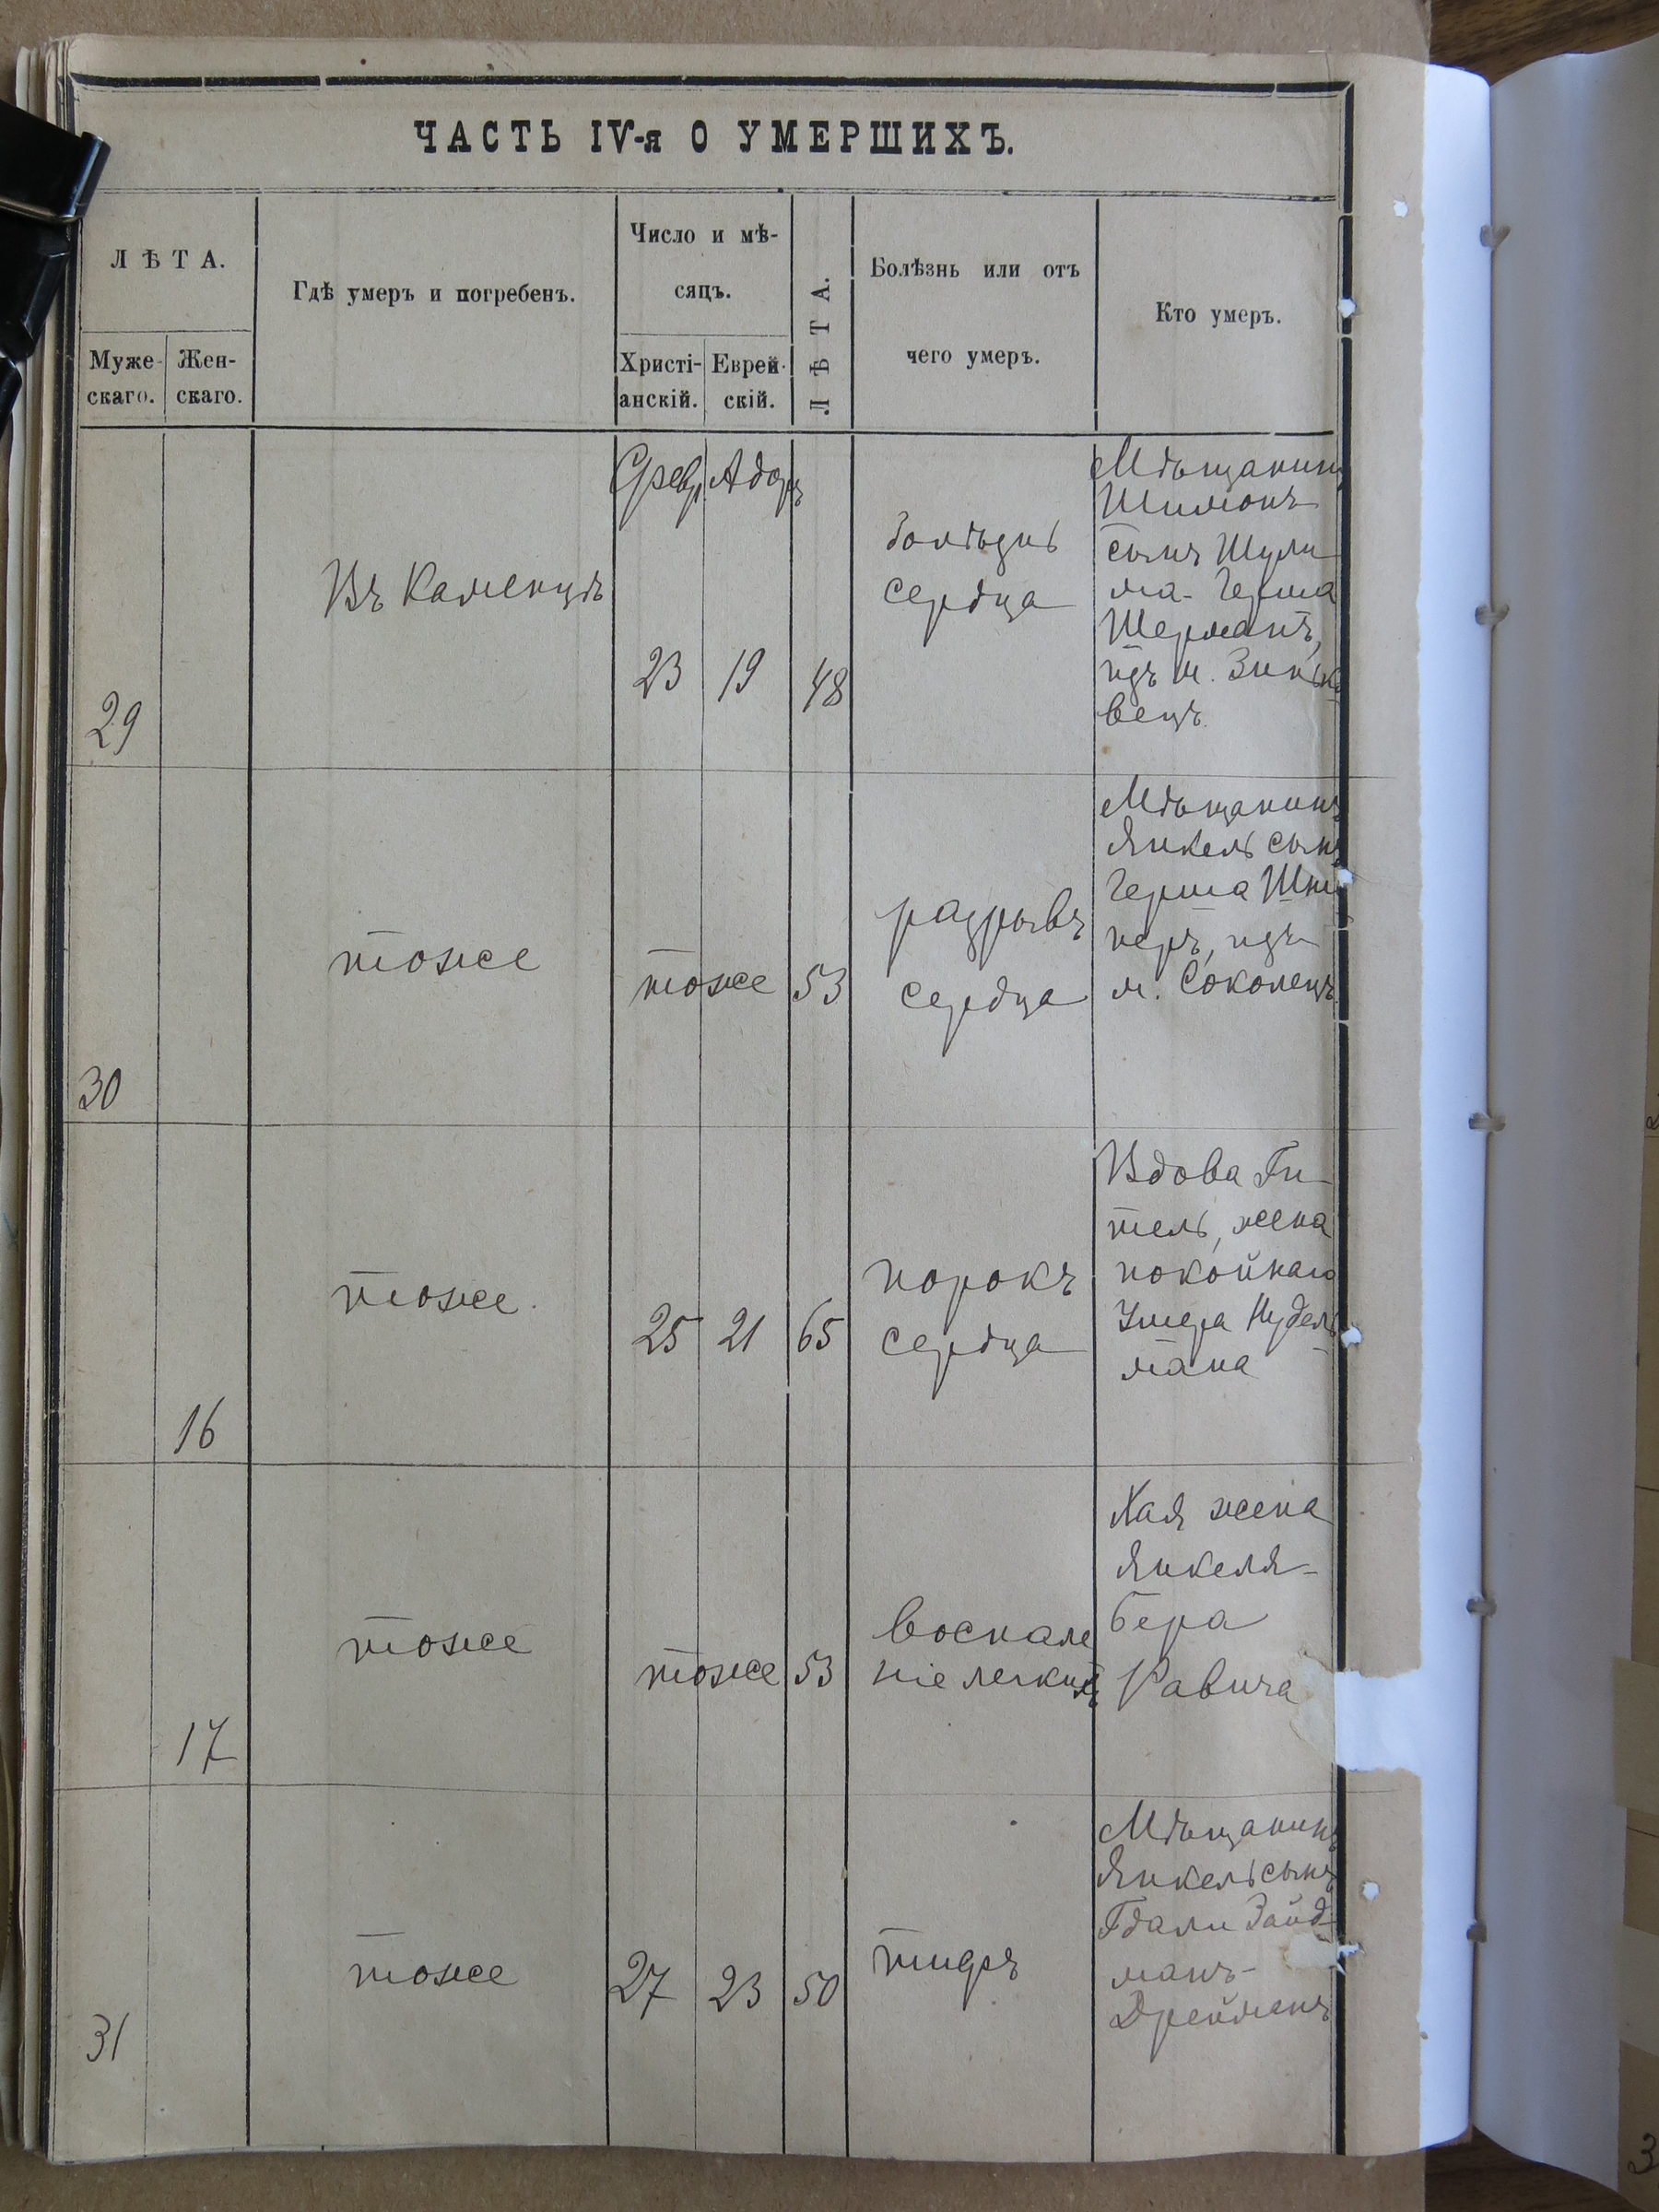 ЧАСТЬ IV-я О УМЕРШИХЪ.
ЛѢТА.
Муже-
скаго.
Жен-
скаго.
Гдѣ умеръ и погребенъ.
Число и мѣ-
сяцъ.
Христі-
анскій.
Еврей-
скій.
ЛѢТА.
Болѣзнь или отъ
чего умеръ.
Кто умеръ.
29
Въ Каменцѣ
Февр.
23
Адаръ
19
48
болѣзнь
сердца
Мѣщанинъ
Шимонъ
сынъ Шули
ма-Герша
Шерманъ,
изъ м. Зинько
вецъ.
30
тоже
тоже
53
разрывъ
сердца
Мѣщанинъ
Янкель сынъ
Герша Шни
перъ, изъ
м. Соколецъ.
16
тоже.
25
21
65
порокъ
сердца
Вдова Ги-
тель, жена
покойнаго
Ушера Нудель
мана
17
тоже
тоже
53
воспале
ніе легкихъ
Хая жена
Янкеля-
бера
Равича
31
тоже
27
23
50
тифъ
Мѣщанинъ
Янкель сынъ
Гдали Зайд-
манъ-
Дрейманъ